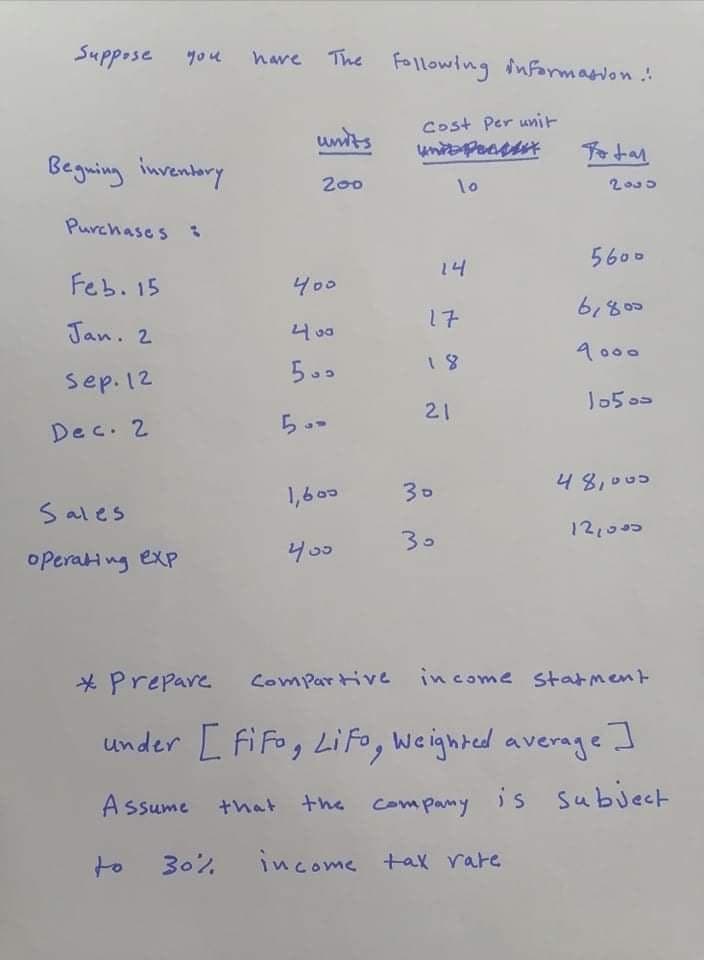 Suppose you have The Following information :
cost Per unit
units Total
Begining inventory 200 10 2000
Purchases :
Feb. 15 400 14 5600
Jan. 2 400 17 6,800
Sep. 12 500 18 9000
Dec. 2 500 21 10500
Sales 1,600 30 48,000
operating exp 400 30 12,000
* Prepare compartive income statment
under [ FiFo, LiFo, Weighted average ]
Assume that the company is subject
to 30% income tax rate